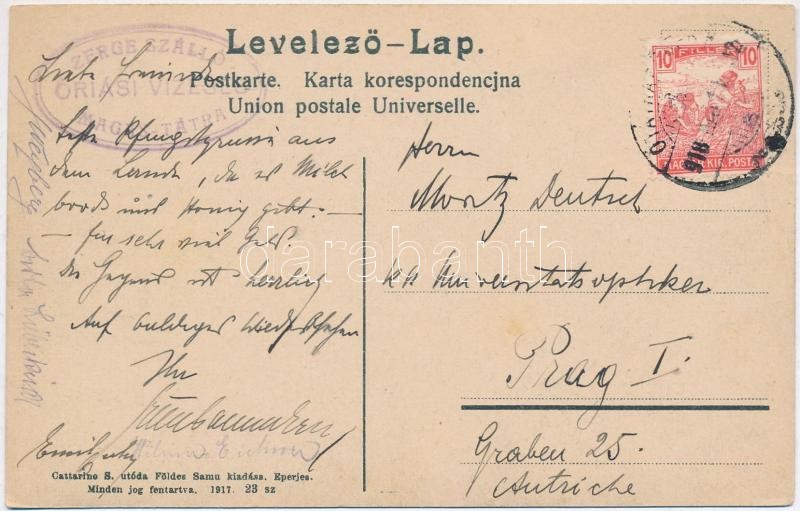 Levelező-Lap.
Postkarte. Karta korespondencjna
Union postale Universelle.
ZERGE SZÁLLÓ
ÓRIÁSI VIZESÉS
MAGAS TÁTRA
10 FILLÉR 10
MAGYAR KIR. POSTA
918
Liebe
beste Pfingstgrüsse aus
dem Lande, da es Milch
brod und Honig gibt: –
– für sehr viel Geld.
die Gegend ist herrlich
Auf baldiges Wiedersehen
Ihr
Emil
Wilma
Herrn
Moritz Deutsch
k k Universitätsoptiker
Prag I.
Graben 25.
Autriche
Cattarino S. utóda Földes Samu kiadása, Eperjes.
Minden jog fentartva. 1917. 23 sz
darabanth